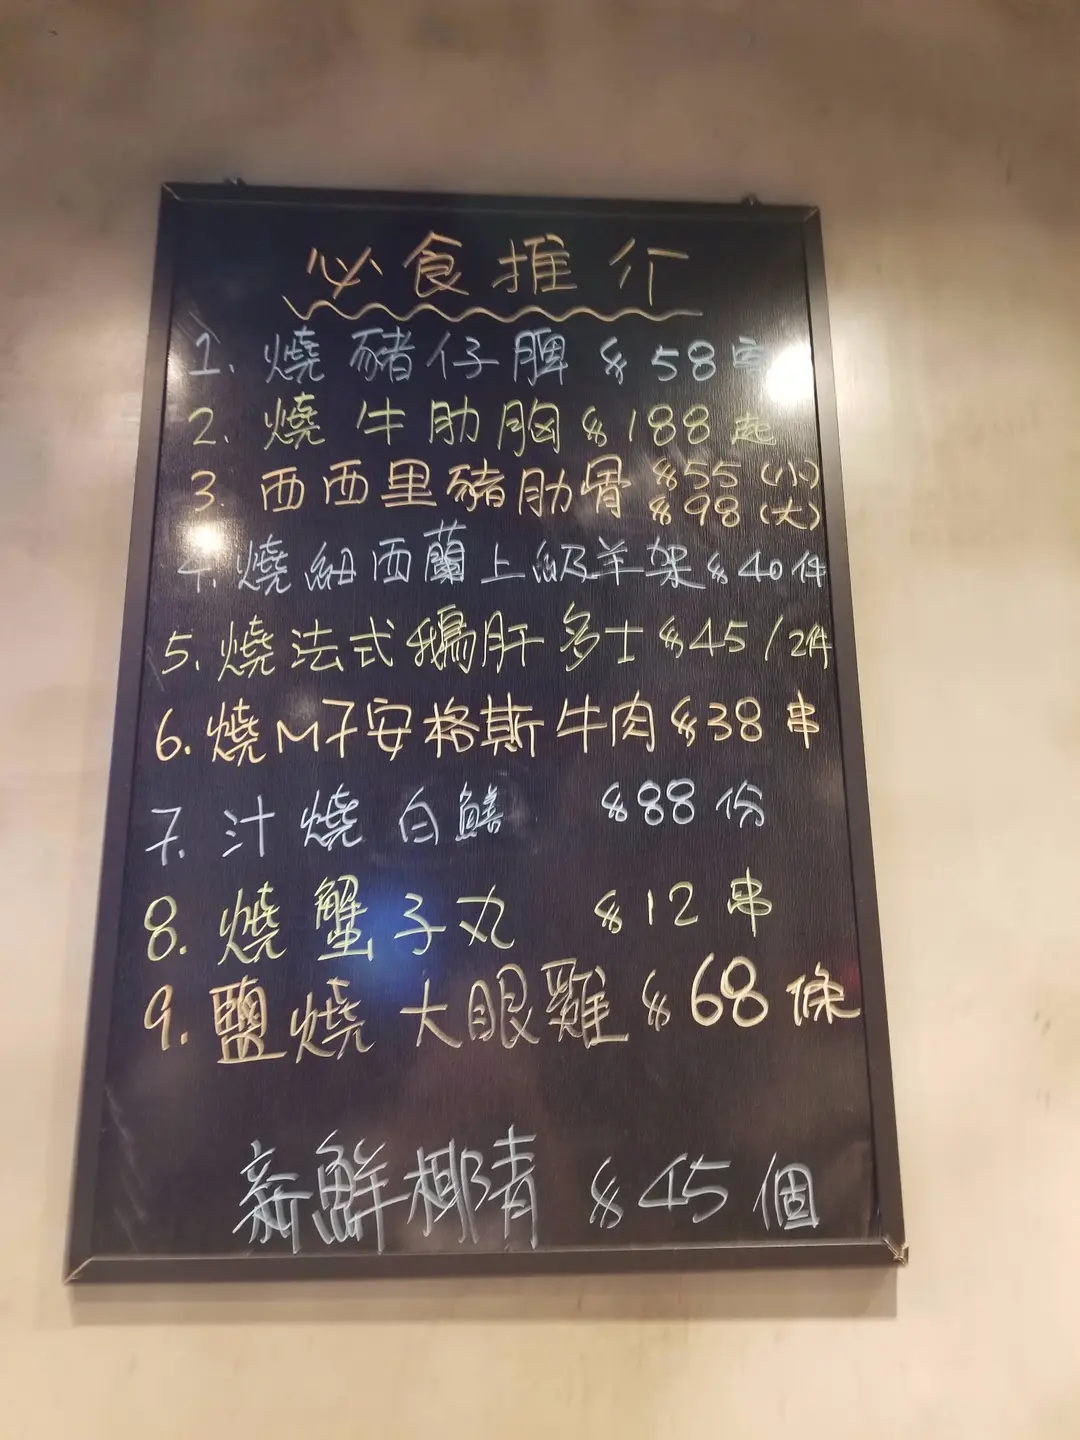 必食推介
1. 燒豬仔脾 $58
2. 燒牛肋胸 $188起
3. 西西里豬肋骨 $55(小)
$98(大)
4. 燒紐西蘭上級羊架 $40件
5. 燒法式鵝肝多士 $45/2件
6. 燒M7安格斯牛肉 $38串
7. 汁燒白鱔 $88份
8. 燒蟹子丸 $12串
9. 鹽燒大眼雞 $68條
新鮮椰青 $45個